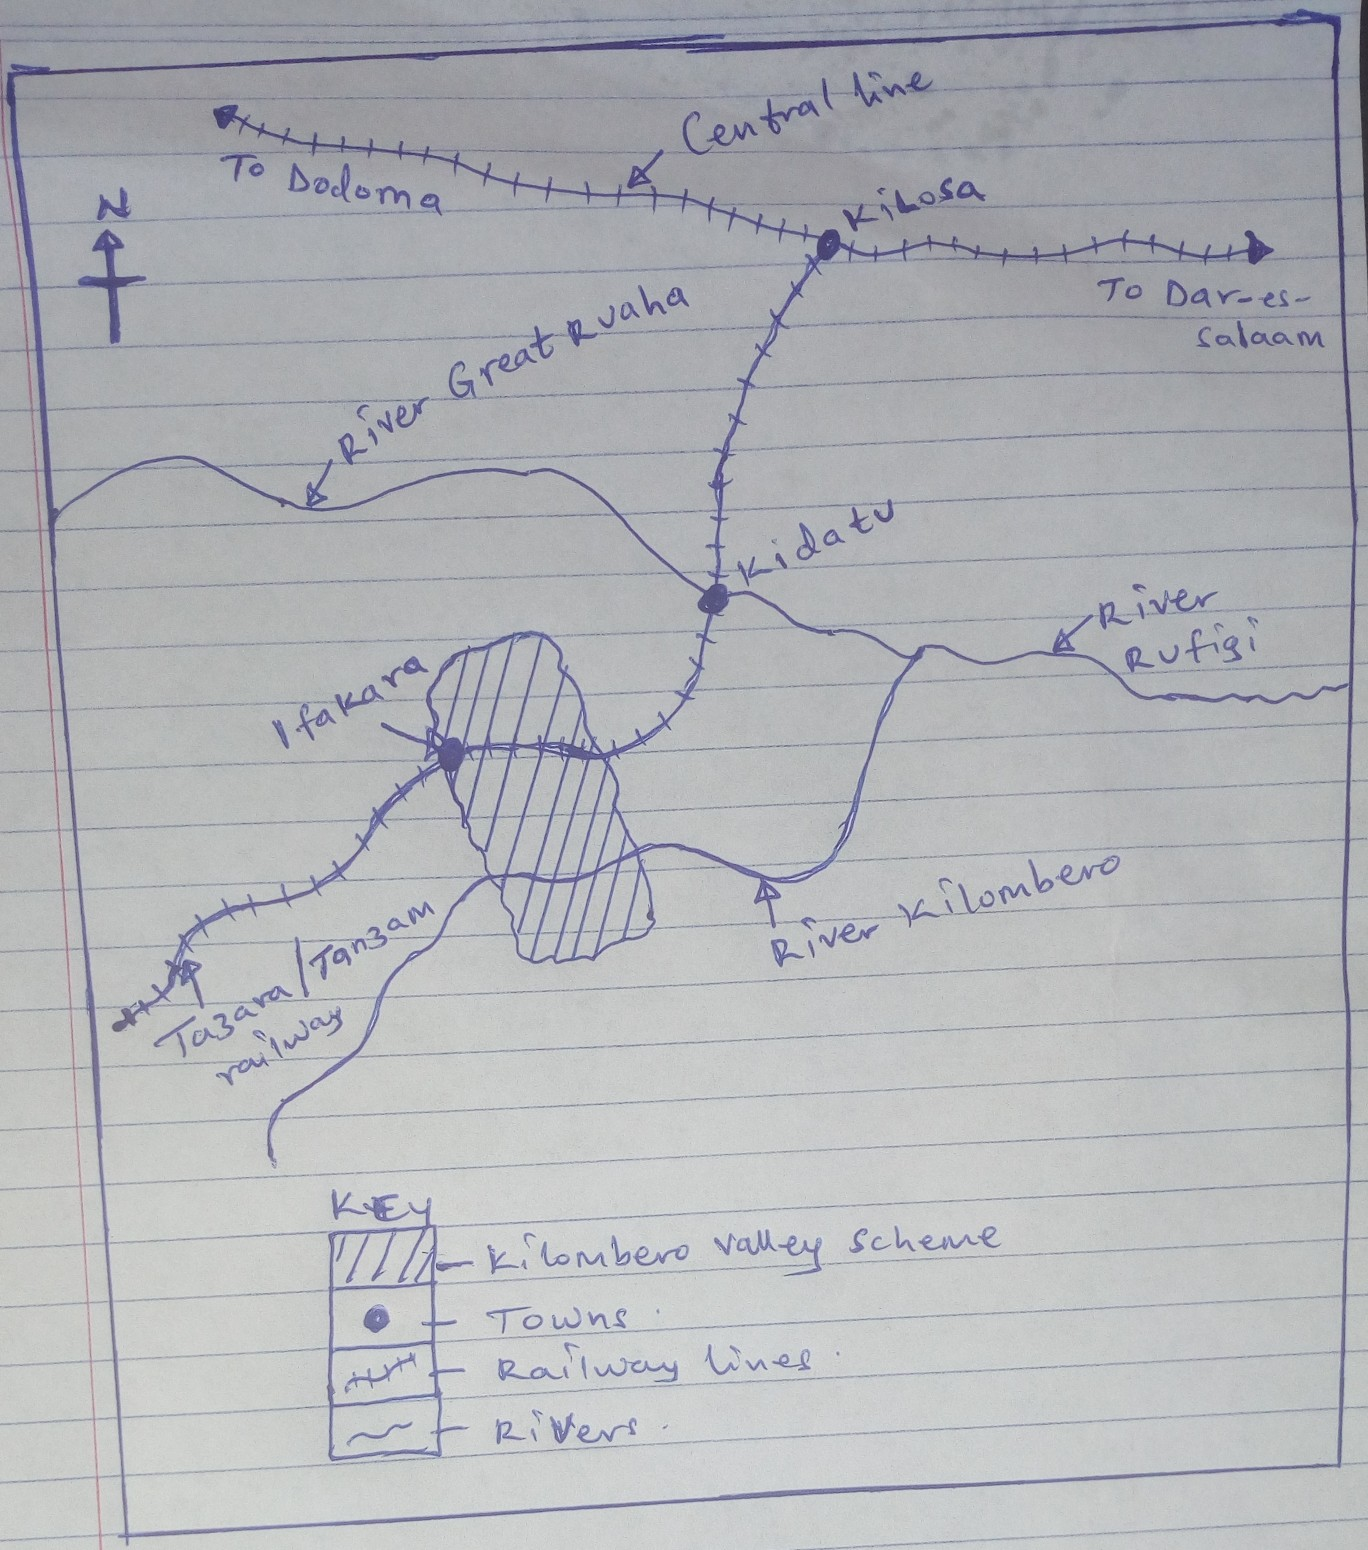 Central line
To Dodoma
Kilosa
N
To Dar-es-
salaam
River Great Ruaha
Kidatu
River
Rufigi
Ifakara
River Kilombero
Tazara/Tanzam
railway
KEY
Kilombero valley scheme
Towns
Railway lines
Rivers